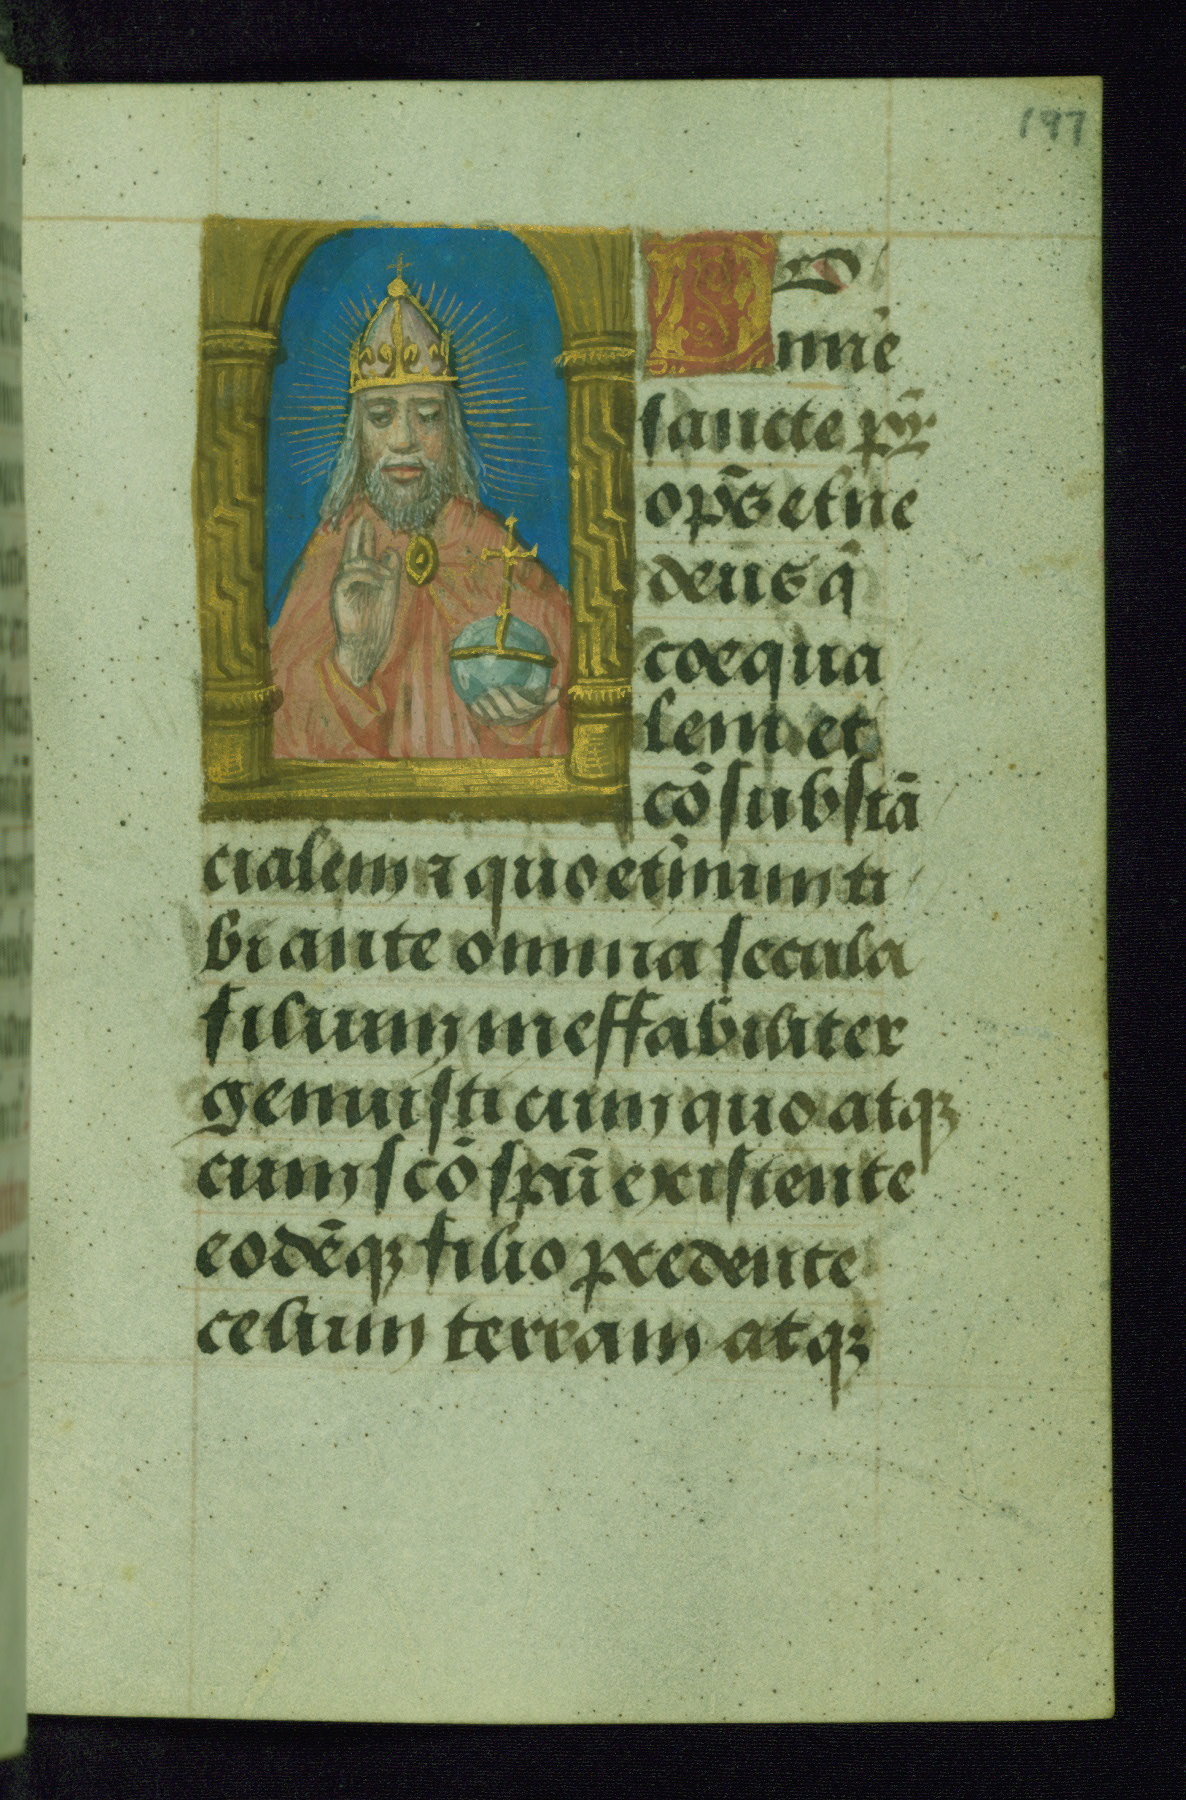 197
Do
mine
sancte pr̄
op̄s et̄ne
deus q̄
coequa
lem et
cōsubstā
cialem ⁊ quoet̄inum ti
bi ante omnia secula
filium ineffabiliter
genuisti cum quo atqꝫ
cum scō spū existente
eodēqꝫ filio ꝓcedente
celum terram atqꝫ